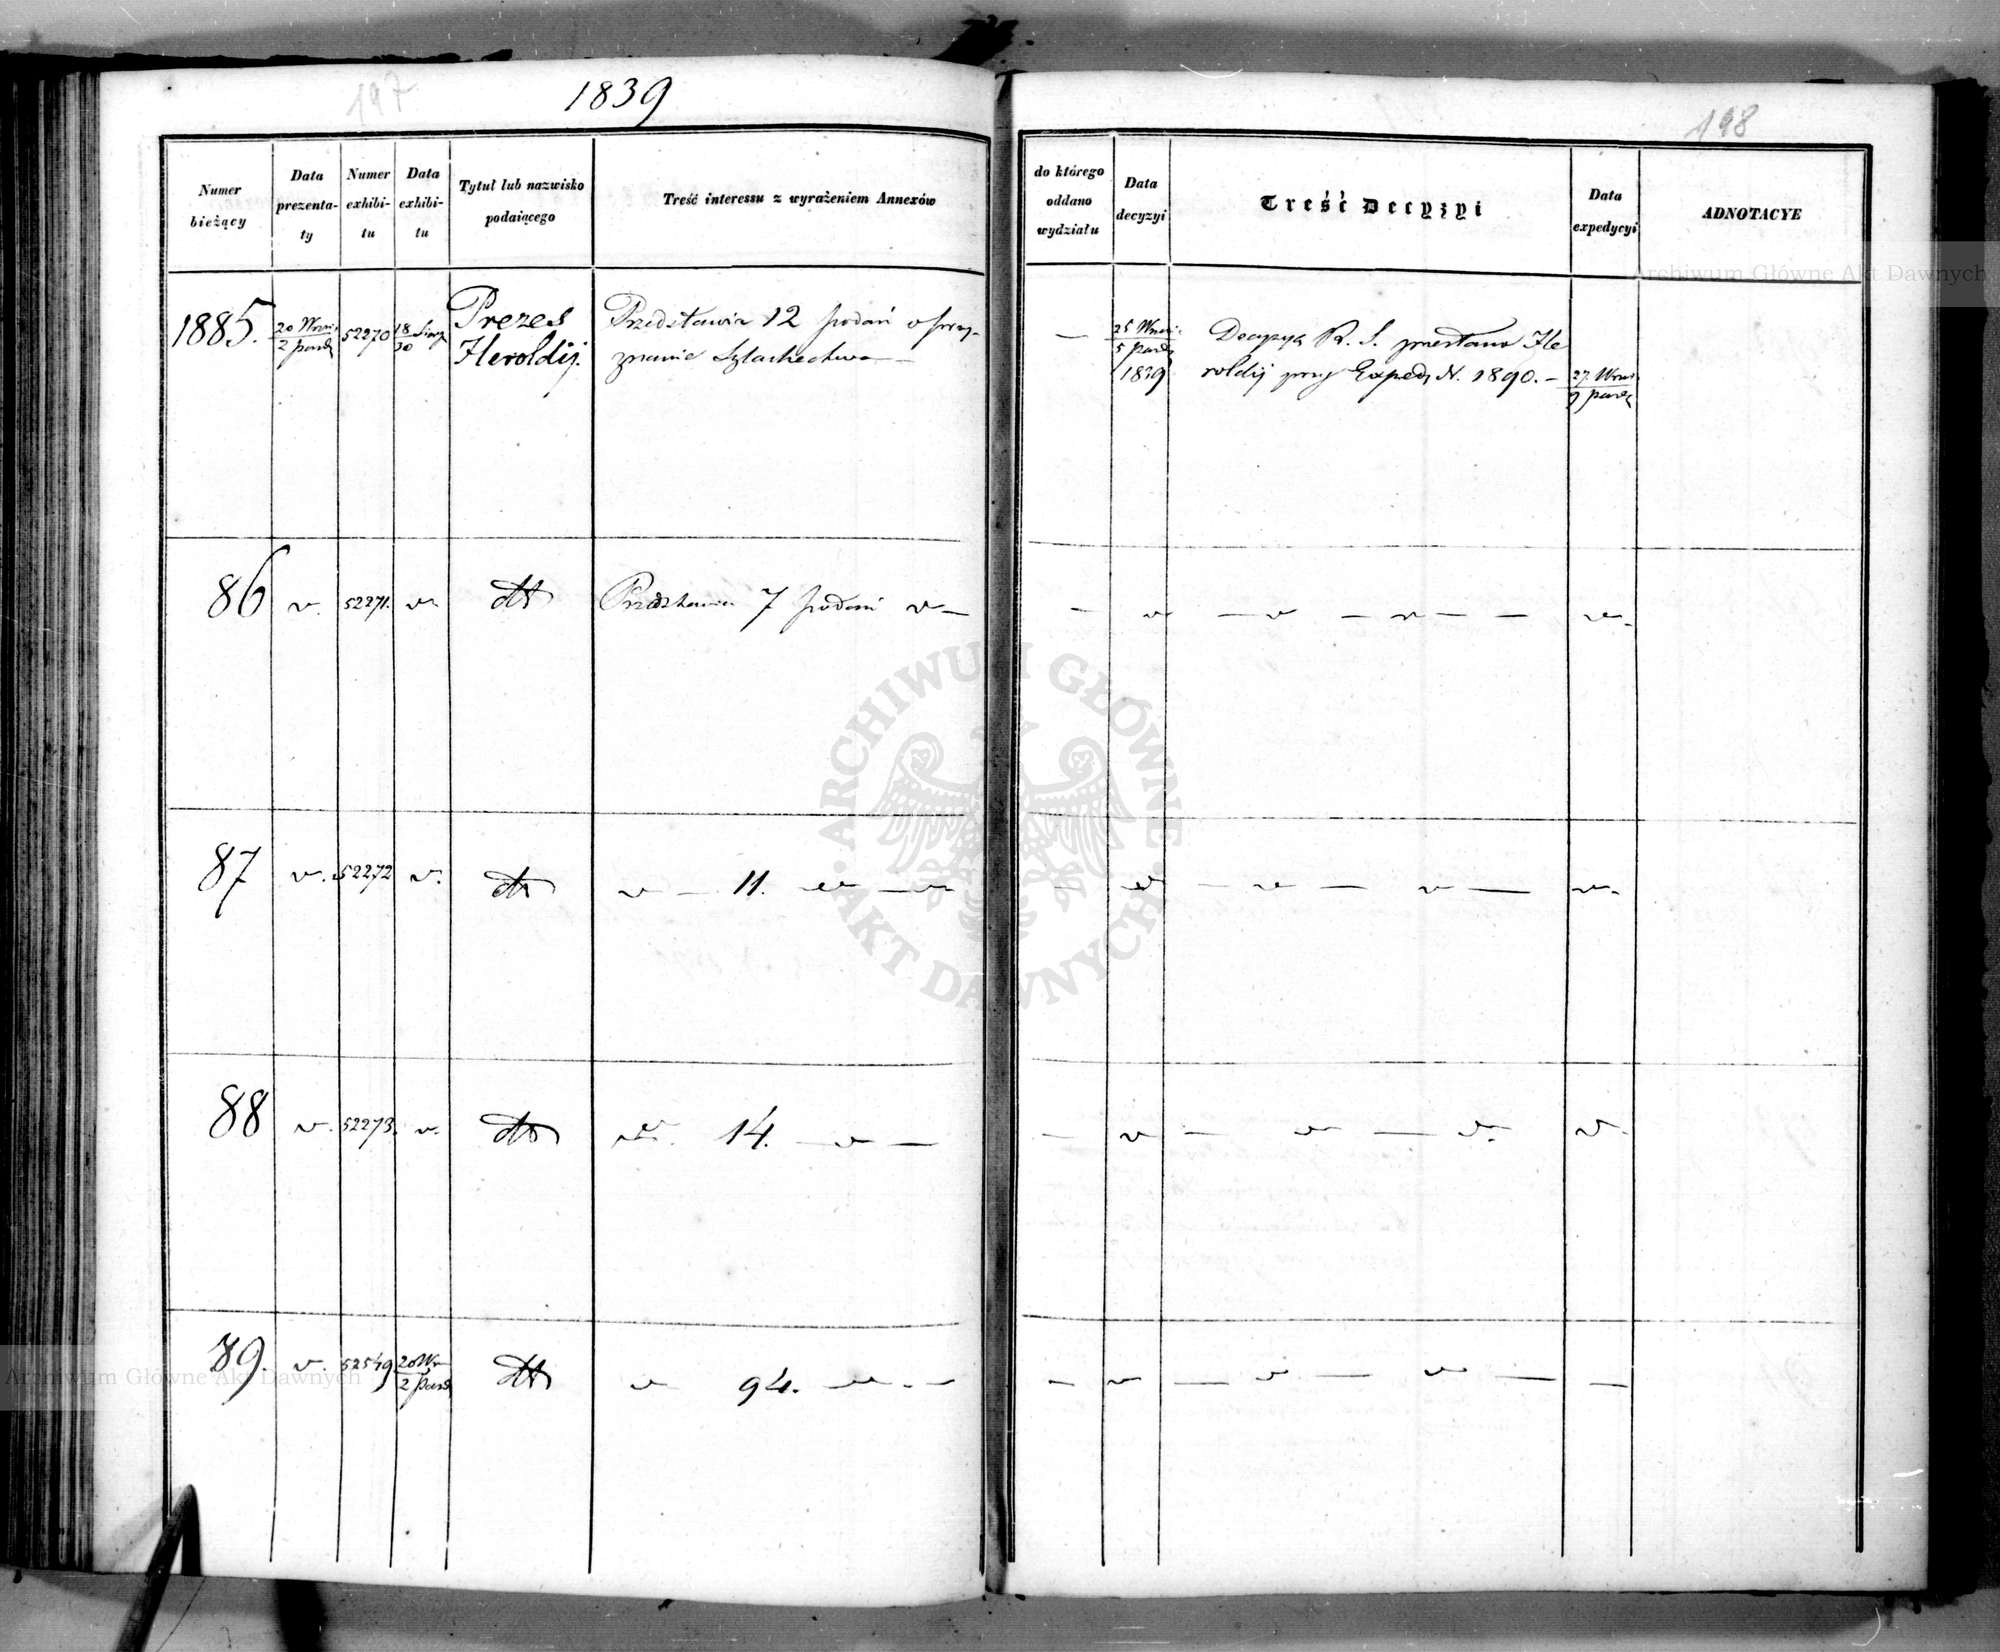 197
1839
Numer bieżący
Data prezenta-ty
Numer exhibi-tu
Data exhibi-tu
Tytuł lub nazwisko podaiącego
Treść interessu z wyrażeniem Annexów
1885.
20 Wrześ.
2 Paźd
52270
18
30
Prezes
Heroldij.
Przedstawia 12 podań o przy-
znanie Szlachectwa —
86
v.
52271.
v.
dtto
Przedstawia 7 podań v —
87
v.
52272
v.
dtto
v — 11. v — v
88
v.
52273.
v.
dtto
v. 14. — v —
89.
v.
52549
20 Wr
2 Paźd
dtto
v 94. v. —
198
do którego oddano wydziału
Data decyzyi
Treść Decyzyi
Data expedycyi
ADNOTACYE
—
25 Wrześ.
5 Paźd
1839
Decyzya R. S. przesłano He
roldij przy Exped. N. 1890. —
27 Wrześ.
9 Paźd
— v — v — v — — v.
— v — v — v — v.
— v — v — v. v.
— v — v — v — —
Archiwum Główne Akt Dawnych
ARCHIWUM GŁÓWNE AKT DAWNYCH
Archiwum Główne Akt Dawnych